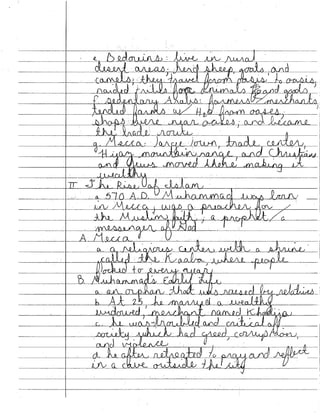 e. Bedouins: live in rural
desert areas; herd sheep, goats, and
camels; they travel from oasis to oasis,
raided tribes for animals and goods
f. Sedentary Arabs: farmers/merchants,
tended farms w/ H2O from oases,
shops were near oases, and became
the trade route
g. Mecca: large town, trade center,
Hijaz mountain range, and Christians
and Jews moved there making it
wealthy
II The Rise of Islam
a. 570 A.D. Muhammad was born
in Mecca; was a preacher for
the Muslim faith; a prophet/a
messenger of God
A. Mecca
a. a religious center with a shrine
called the Kaaba, where people
flocked to every year
B. Muhammad's Early Life
a. an orphan that was raised by relatives
b. At 25, he married a wealthy
widowed, merchant named Khadija
c. he was troubled and critical of
society which had greed, corruption,
and violence
d. he often retreated to pray and reflect
in a cave outside the city